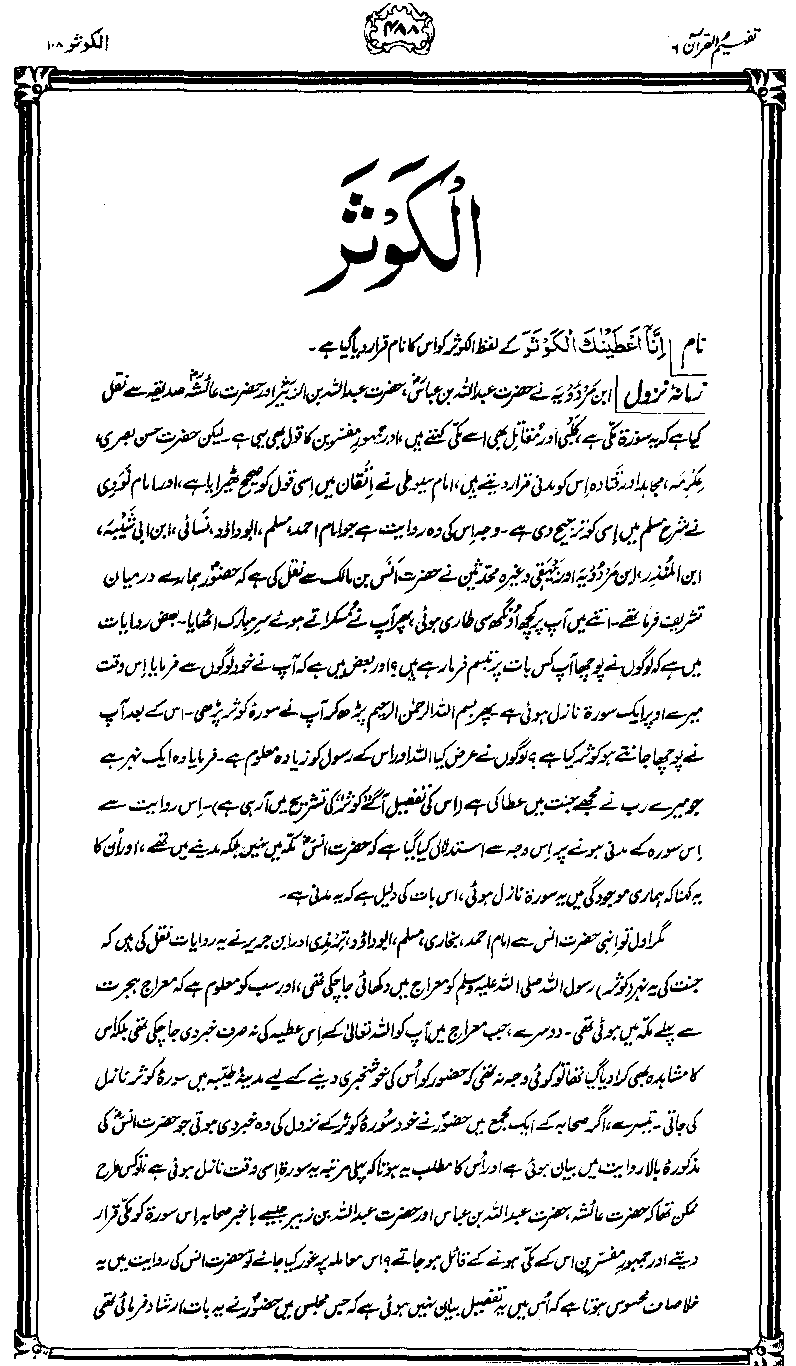 تفہیم القرآن ۶
۴۸۸
الکوثر ۱۰۸
الْکَوْثَرَ
نام | اِنَّآ اَعْطَیْنٰكَ الْكَوْثَرَ کے لفظ الکوثر کو اس کا نام قرار دیا گیا ہے۔
زمانۂ نزول | ابن مَرْدُوْیَہ نے حضرت عبداللہ بن عباسؓ، حضرت عبداللہ بن الزبیرؓ اور حضرت عائشہؓ صدیقہ سے نقل
کیا ہے کہ یہ سورۃ مکی ہے، کَلْبی اور مُقاتِل بھی اسے مکی کہتے ہیں، اور جمہور مفسرین کا قول بھی یہی ہے۔ لیکن حضرت حسن بصری،
عِکْرِمہ، مجاہد اور قَتادہ اِس کو مدنی قرار دیتے ہیں، امام سیوطی نے اِتْقان میں اِسی قول کو صحیح ٹھیرایا ہے، اور امام نَوَوِی
نے شرح مسلم میں اِسی کو ترجیح دی ہے۔ وجہ اِس کی وہ روایت ہے جو امام احمد، مسلم، ابوداؤد، نَسائی، ابن ابی شَیْبَہ،
ابن المُنْذِر، ابن مَرْدُوْیَہ اور بَیْہَقِی وغیرہ محدثین نے حضرت اَنَس بن مالک سے نقل کی ہے کہ حضورؐ ہمارے درمیان
تشریف فرما تھے۔ اتنے میں آپ پر کچھ اُونگھ سی طاری ہوئی، پھر آپ نے مُسکراتے ہوئے سرِ مبارک اٹھایا۔ بعض روایات
میں ہے کہ لوگوں نے پوچھا آپ کس بات پر تبسم فرما رہے ہیں؟ اور بعض میں ہے کہ آپ نے خود لوگوں سے فرمایا اِس وقت
میرے اوپر ایک سورۃ نازل ہوئی ہے۔ پھر بسم اللہ الرحمٰن الرحیم پڑھ کر آپ نے سورۂ کوثر پڑھی۔ اس کے بعد آپ
نے پوچھا جانتے ہو کوثر کیا ہے؟ لوگوں نے عرض کیا اللہ اور اس کے رسول کو زیادہ معلوم ہے۔ فرمایا وہ ایک نہر ہے
جو میرے رب نے مجھے جنت میں عطا کی ہے (اس کی تفصیل آگے ”کوثر“ کی تشریح میں آرہی ہے)۔ اِس روایت سے
اِس سورہ کے مدنی ہونے پر اِس وجہ سے استدلال کیا گیا ہے کہ حضرت انسؓ مکہ میں نہیں بلکہ مدینے میں تھے، اور اُن کا
یہ کہنا کہ ہماری موجودگی میں یہ سورۃ نازل ہوئی، اس بات کی دلیل ہے کہ یہ مدنی ہے۔
مگر اول تو انہی حضرت انس سے امام احمد، بخاری، مسلم، ابوداؤد، ترمذی اور ابن جریر نے یہ روایات نقل کی ہیں کہ
جنت کی یہ نہر (کوثر) رسول اللہ صلی اللہ علیہ وسلم کو معراج میں دکھائی جاچکی تھی، اور سب کو معلوم ہے کہ معراج ہجرت
سے پہلے مکہ میں ہوئی تھی۔ دوسرے، جب معراج میں آپ کو اللہ تعالیٰ کے اِس عطیہ کی نہ صرف خبر دی جاچکی تھی بلکہ اُس
کا مشاہدہ بھی کرا دیا گیا تھا تو کوئی وجہ نہ تھی کہ حضور کو اُس کی خوشخبری دینے کے لیے مدینۂ طیبہ میں سورۂ کوثر نازل
کی جاتی۔ تیسرے، اگر صحابہ کے ایک مجمع میں حضورؐ نے خود سورۂ کوثر کے نزول کی وہ خبر دی ہوتی جو حضرت انسؓ کی
مذکورۂ بالا روایت میں بیان ہوئی ہے اور اُس کا مطلب یہ ہوتا کہ پہلی مرتبہ یہ سورۃ اِسی وقت نازل ہوئی ہے، تو کس طرح
ممکن تھا کہ حضرت عائشہ، حضرت عبداللہ بن عباس اور حضرت عبداللہ بن زبیر جیسے باخبر صحابہ اِس سورۃ کو مکی قرار
دیتے اور جمہور مفسرین اس کے مکی ہونے کے قائل ہوجاتے؟ اس معاملہ پر غور کیا جائے تو حضرت انس کی روایت میں یہ
خلا صاف محسوس ہوتا ہے کہ اُس میں یہ تفصیل بیان نہیں ہوئی ہے کہ جس مجلس میں حضورؐ نے یہ بات ارشاد فرمائی تھی